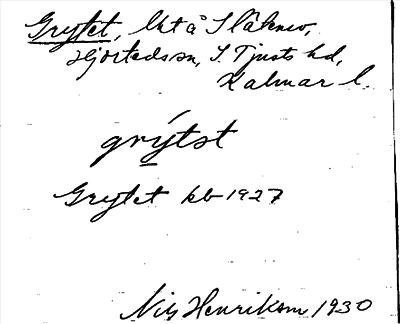 Grytet, lht å Slåkmo,
Hjorteds sn, S. Tjusts hd,
Kalmar l.
grýtst
Grytet kb 1927
Nils Henrikson 1930